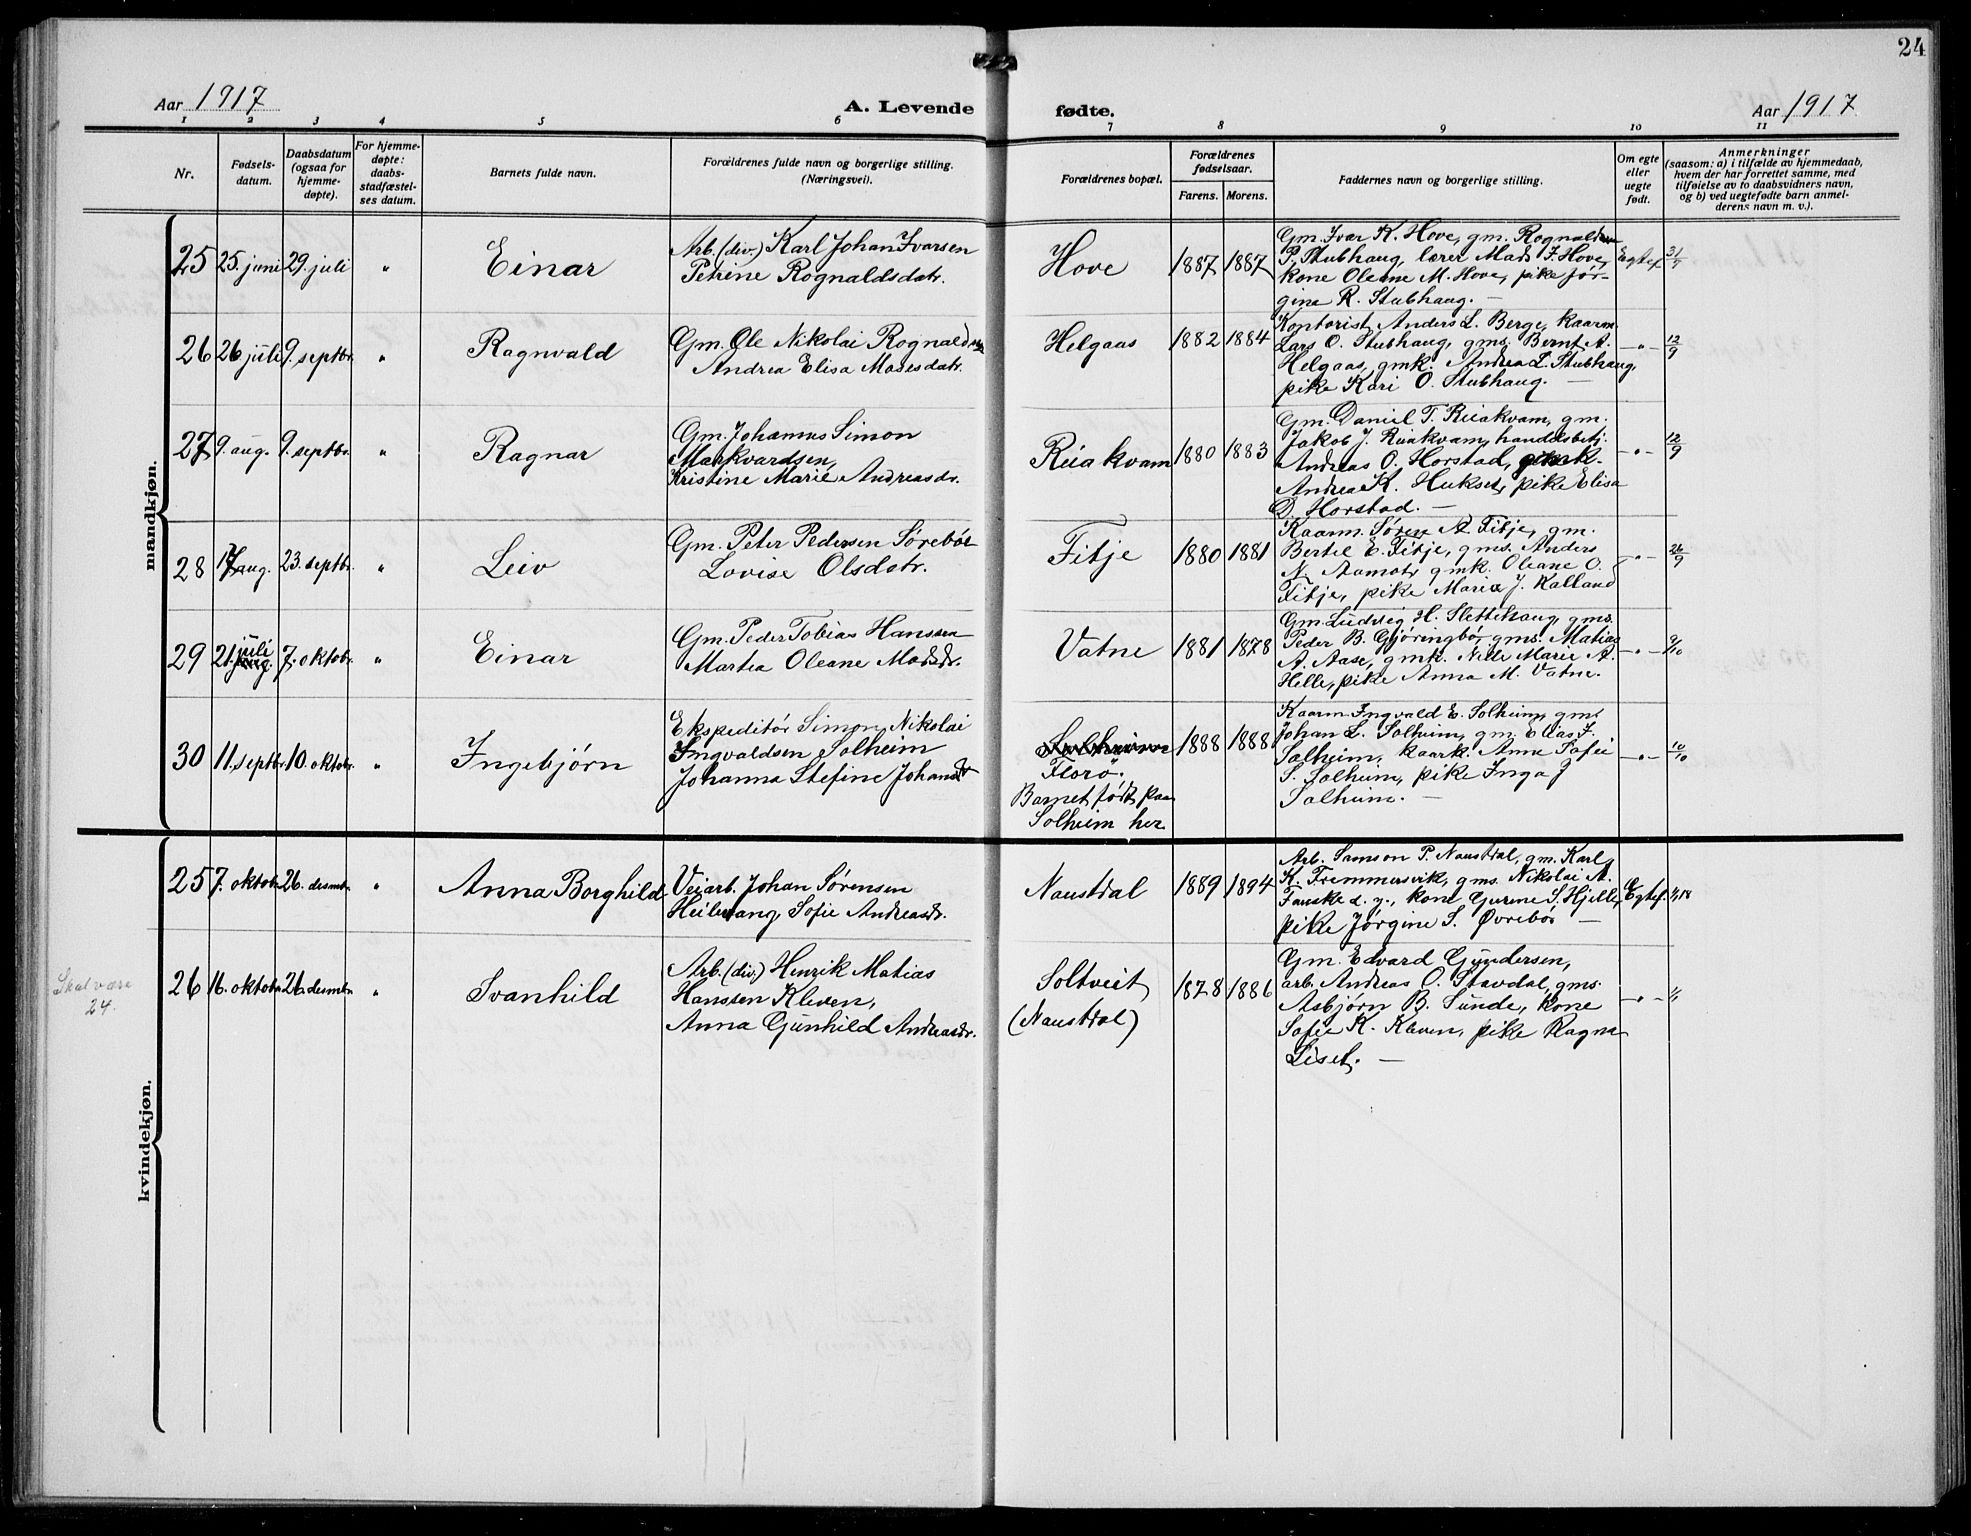 24
Aar 1917
A. Levende
fødte.
Aar 1917
1 2 3 4 5 6 7 8 9 10 11
Nr.
Fødsels-
datum.
Daabsdatum
(ogsaa for
hjemme-
døpte).
For hjemme-
døpte:
daabs-
stadfæstel-
ses datum.
Barnets fulde navn.
Forældrenes fulde navn og borgerlige stilling.
(Næringsvei).
Forældrenes bopæl.
Forældrenes
fødselsaar.
Farens. Morens.
Faddernes navn og borgerlige stilling.
Om egte
eller
uegte
født.
Anmerkninger
(saasom: a) i tilfælde av hjemmedaab,
hvem der har forrettet samme, med
tilføielse av to daabsvidners navn,
og b) ved uegtefødte barn anmel-
derens navn m. v.).
mandkjøn.
25 25. juni 29. juli "
Einar
Arb. (div.) Karl Johan Ivarsen
Petrine Rognaldsdatr.
Hove
1887 1887
Gm. Ivar K. Hove, gm. Rognald
P. Stubhaug, lærer Mads J. Hove,
kone Oleane M. Hove, pike Jør-
gina R. Stubhaug. —
Egtef. 31/7
26 26 juli 9. septbr. "
Ragnvald
Gm. Ole Nikolai Rognaldsen
Andrea Elisa Mosesdatr.
Helgaas
1882 1884
Kontorist Anders L. Berge, kaarm.
Lars O. Stubhaug, gms. Bernt A.
Helgaas, gmk. Andrea L. Stubhaug,
pike Kari O. Stubhaug. —
—"— 12/9
27 9. aug. 9. septbr. "
Ragnar
Gm. Johannes Simon
Markvardsen,
Kristine Marie Andreasdr.
Reiakvam
1880 1883
Gm. Daniel T. Reiakvam, gm.
Jakob J. Reiakvam, handelsbetj.
Andreas O. Horstad, gmk.
Andrea K. Hukset, pike Elisa
D. Horstad. —
—"— 12/9
28 17 aug. 23. septbr. "
Leiv
Gm. Peter Pedersen Sørebøe
Lovise Olsdatr.
Fitje
1880 1881
Kaarm. Søren A. Fitje, gm.
Bertel E. Fitje, gms. Anders
N. Aamot, gmk. Oleane O.
Fitje, pike Maria J. Kalland
—"— 26/9
29 21. juli 7. oktobr. "
Einar
Gm. Peder Tobias Hanssen
Martha Oleane Madsdr.
Vatne
1881 1878
Gm. Ludvig H. Slettehaug, gms.
Peder B. Gjørengbø, gms. Matias
A. Aase, gmk. Nille Marie A.
Helle, pike Anna M. Vatne.
—"— 9/10
30 11. septbr. 10. oktobr. "
Ingebjørn
Ekspeditør Simon Nikolai
Ingvaldsen Solheim
Johanna Stefine Johansdr
Solheim
Florø.
Barnet født paa
Solheim her
1888 1888
Kaarm. Ingvald E. Solheim, gms.
Johan L. Solheim, gm. Elias J.
Solheim, kaark. Anne Sofie
S. Solheim, pike Inga J
Solheim. —
—"— 10/10
kvindekjøn.
25 7. oktobr. 26. desmbr. "
Anna Borghild
Veiarb. Johan Sørensen
Heilevang, Sofie Andreasdr.
Naustdal
1889 1894
Arb. Samson P. Naustdal, gm. Karl
K. Fremmersvik, gms. Nikolai A.
Fauske d. y., kone Gurine S. Hjelle,
pike Jørgine S. Øvrebø —
Egtef. 1/1 18
Skal være
24.
26 16. oktobr. 26. desmbr. "
Svanhild
Arb. (div.) Henrik Matias
Hanssen Kleven,
Anna Gunhild Andreasdr.
Soltveit
(Naustdal)
1878 1886
Gm. Edvard Gundersen,
arb. Andreas O. Stavdal, gms.
Asbjørn B. Sunde, kone
Sofie K. Kleven, pike Ragna
Liset. —
—"— 1/1